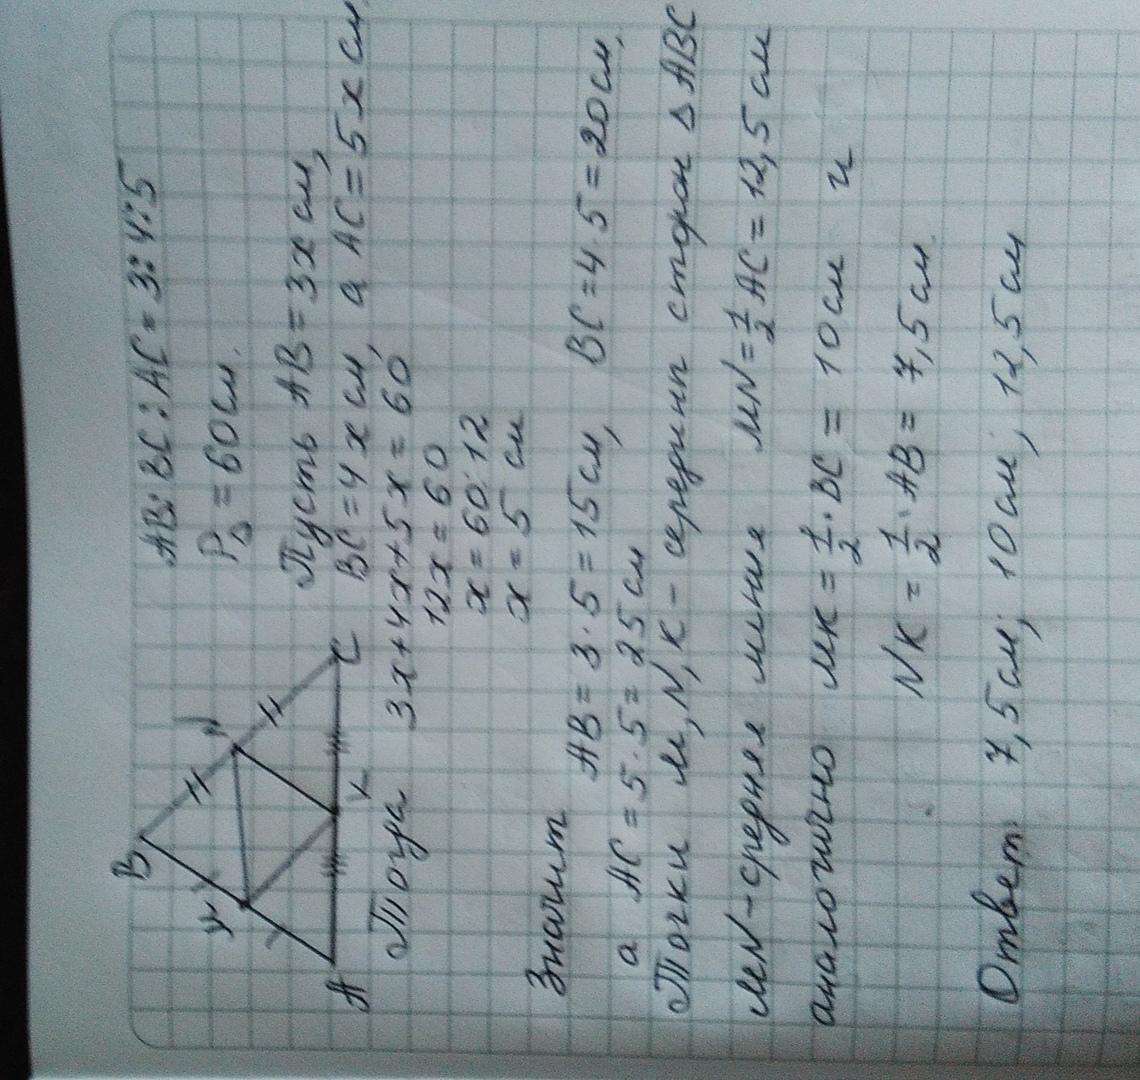 AB:BC:AC = 3:4:5
P△ = 60 см.
Пусть AB = 3x см,
BC = 4x см, а AC = 5x см.
B
M
N
A
K
C
Тогда 3x+4x+5x = 60
12x = 60
x = 60:12
x = 5 см
Значит AB = 3·5 = 15 см, BC = 4·5 = 20 см,
а AC = 5·5 = 25 см
Точки M, N, K - середин сторон △ ABC
MN - средняя линия MN = 1/2 AC = 12,5 см
аналогично MK = 1/2 · BC = 10 см и
NK = 1/2 · AB = 7,5 см.
Ответ: 7,5 см; 10 см; 12,5 см